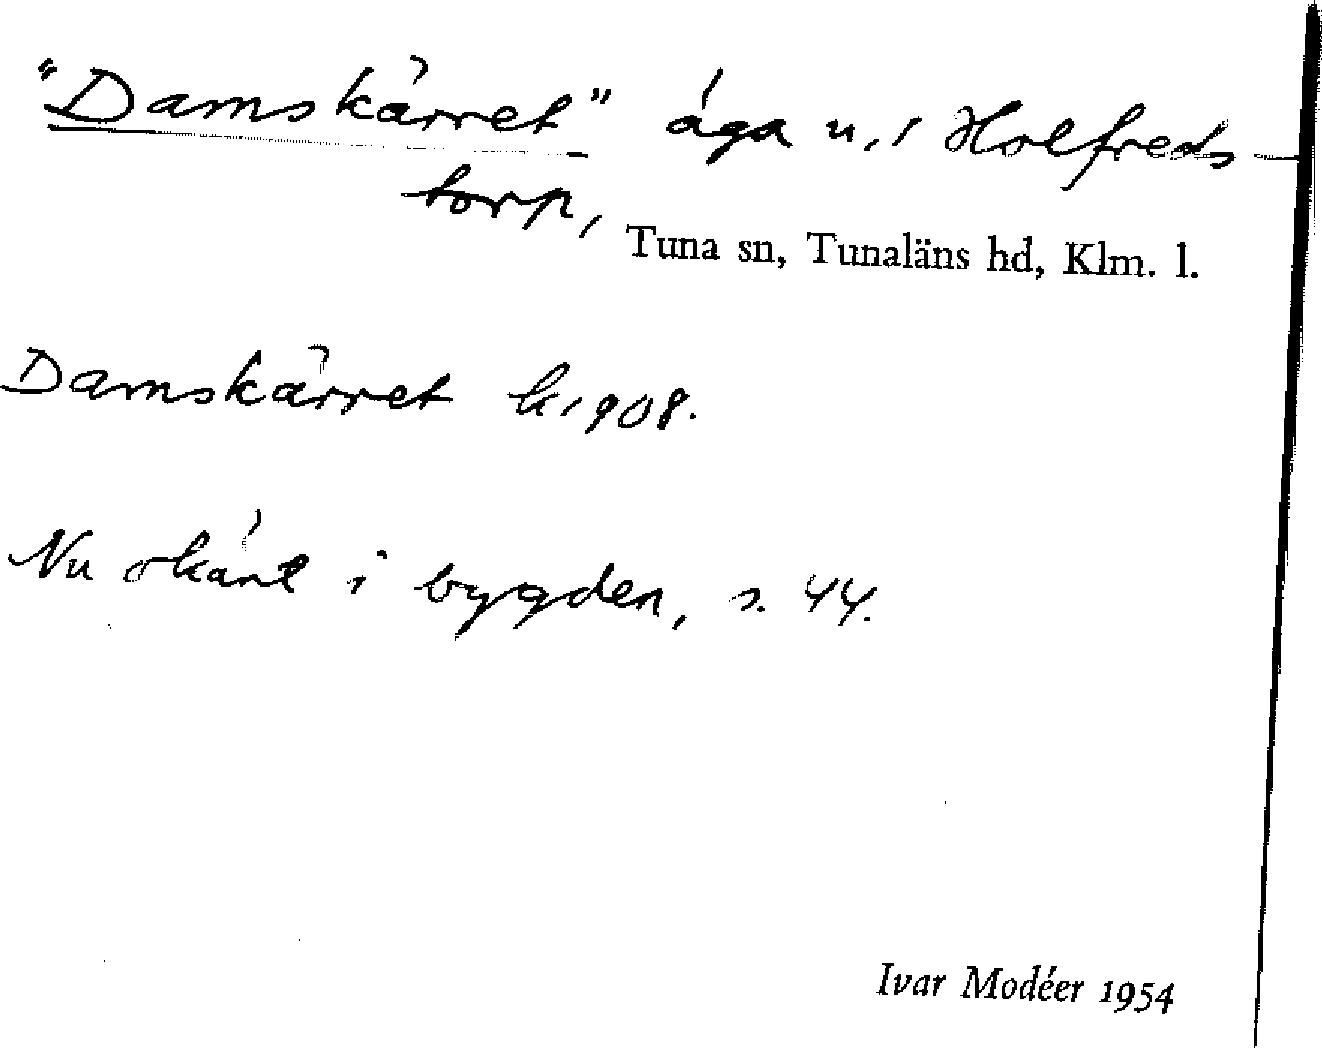 "Damskärret" äga u. Holfreds-
torp,
Tuna sn, Tunaläns hd, Klm. l.
Damskärret k. 1908.
Nu okänt i bygden, s. 44.
Ivar Modéer 1954